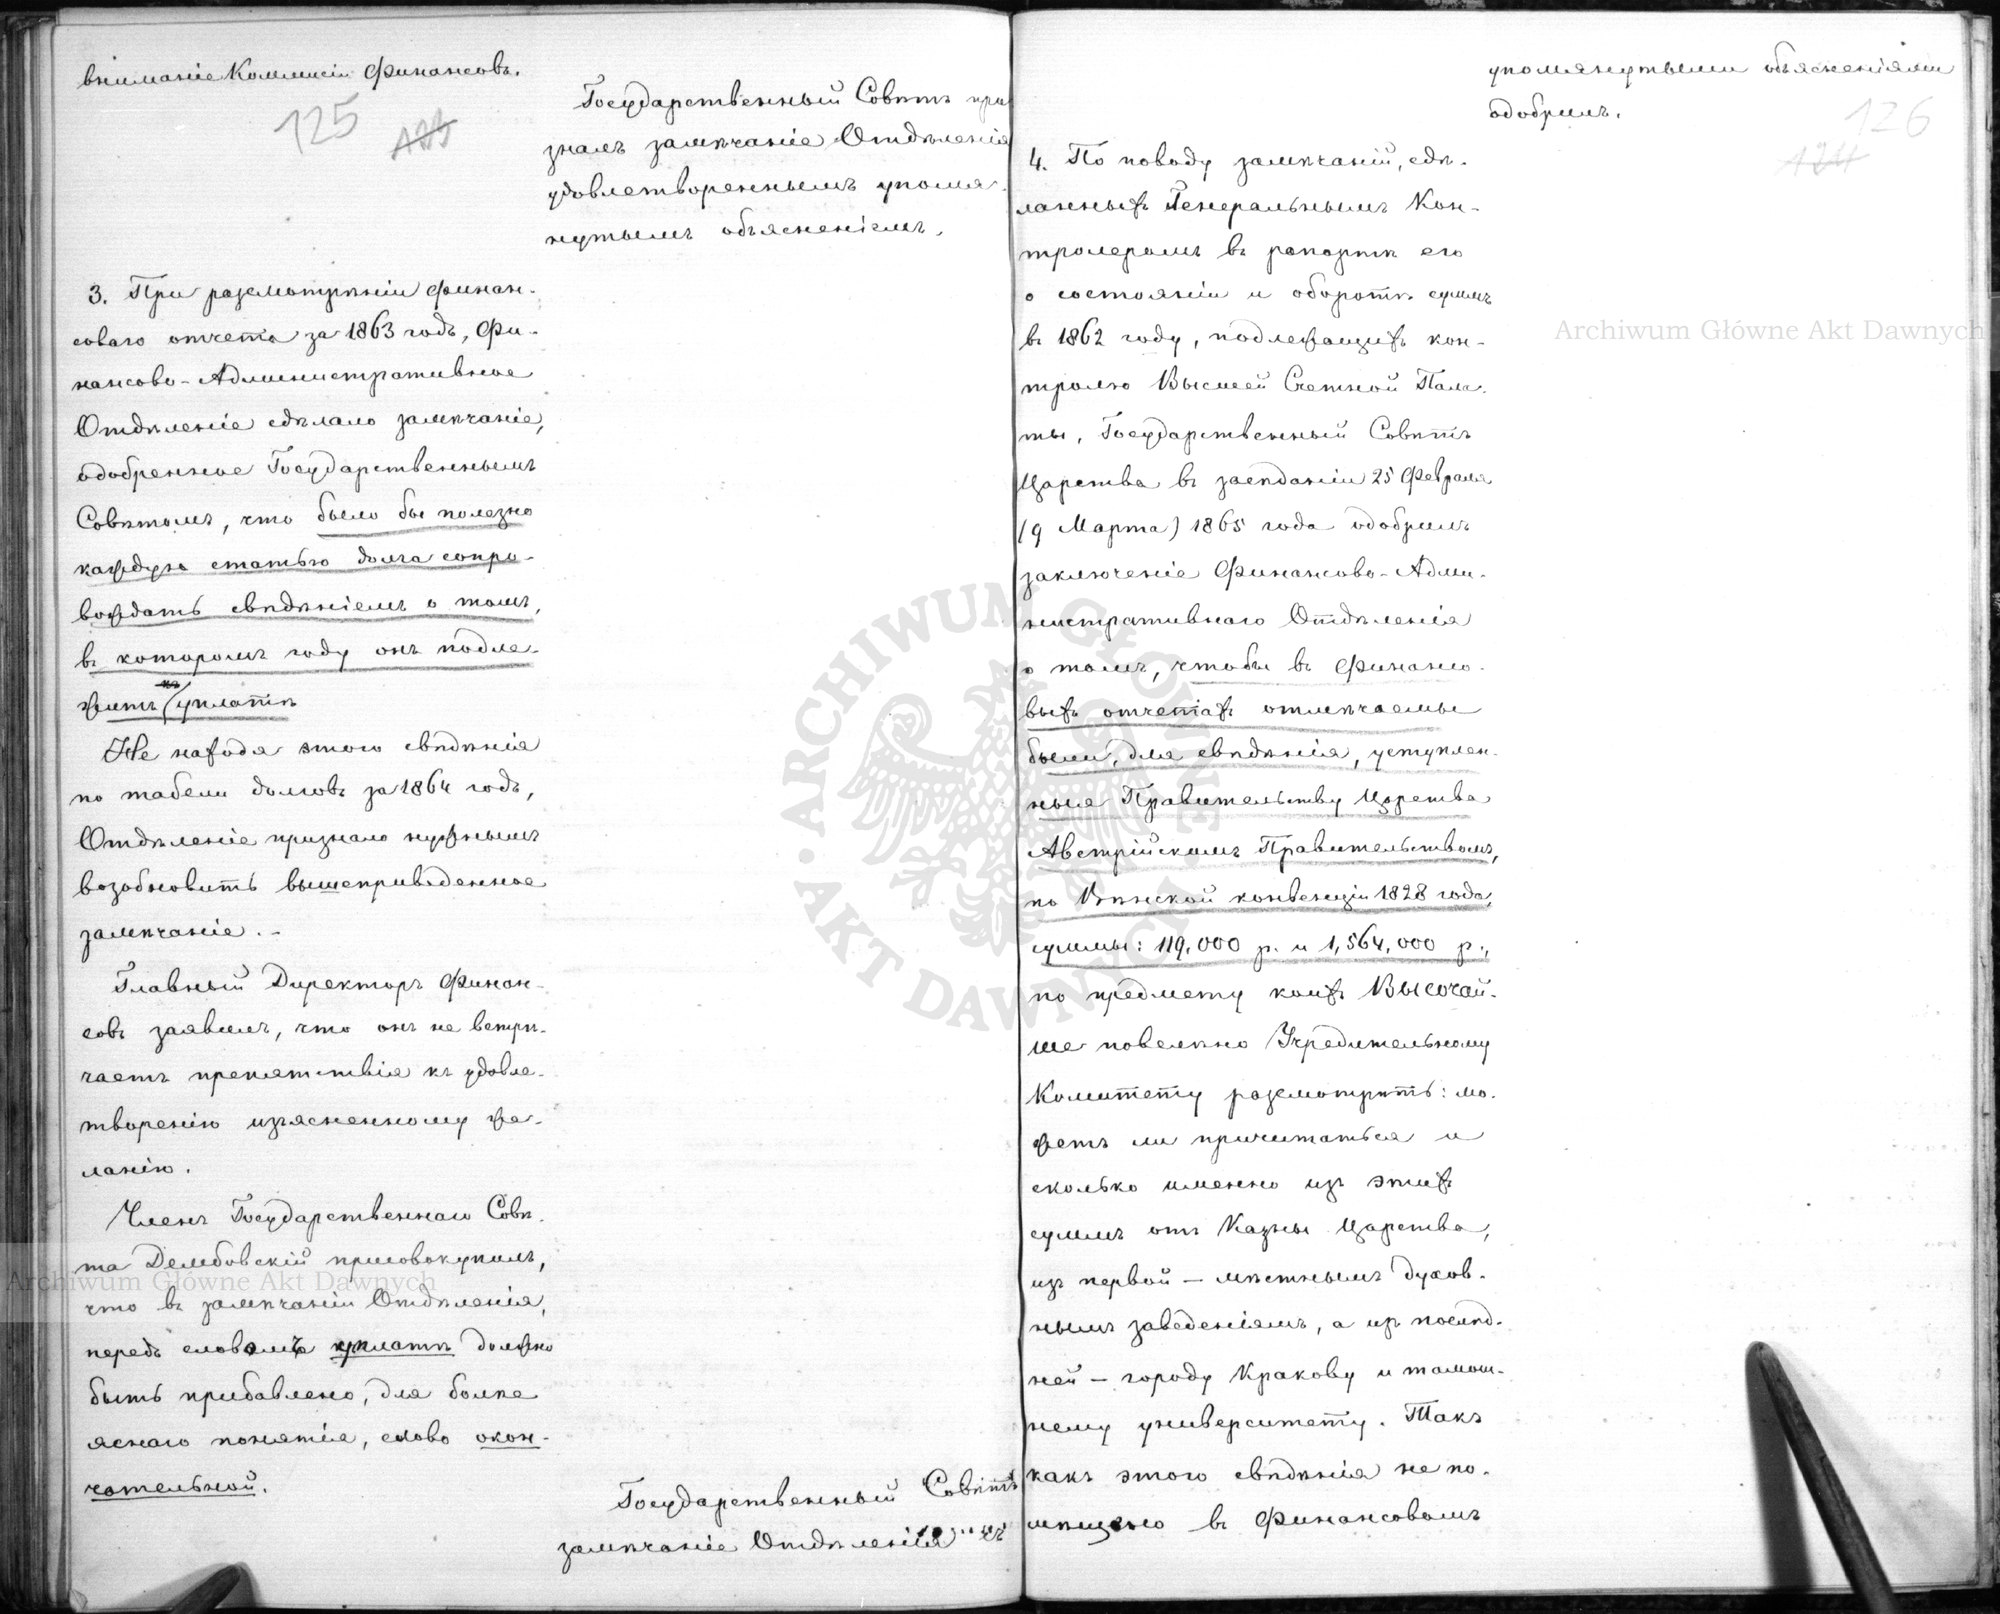 вниманіе Коммисіи Финансовъ.
125
Государственный Совѣтъ при
зналъ замѣчаніе Отдѣленія
удовлетвореннымъ упомя-
нутымъ объясненіемъ.
3. При разсмотрѣніи финан-
соваго отчета за 1863 годъ, Фи-
нансово-Административное
Отдѣленіе сдѣлало замѣчаніе,
одобренное Государственнымъ
Совѣтомъ, что было бы полезно
каждую статью долга сопро-
вождать свѣдѣніемъ о томъ,
въ которомъ году онъ подле-
житъ уплатѣ
Не находя этого свѣдѣнія
по табели долговъ за 1864 годъ,
Отдѣленіе признало нужнымъ
возобновить вышеприведенное
замѣчаніе. -
Главный Директоръ Финан-
совъ заявилъ, что онъ не встрѣ-
чаетъ препятствія къ удовле-
творенію изъясненному же-
ланію.
Членъ Государственнаго Совѣ-
та Дембовскій присовокупилъ,
что въ замѣчаніи Отдѣленія,
передъ словомъ уплатѣ должно
быть прибавлено, для болѣе
яснаго понятія, слово окон-
чательной.
Государственный Совѣтъ
замѣчаніе Отдѣленія съ
упомянутыми объясненіями
одобрилъ.
126
124
4. По поводу замѣчаній, сдѣ-
ланныхъ Генеральнымъ Кон-
тролеромъ въ рапортѣ его
о состояніи и оборотѣ суммъ
въ 1862 году, подлежащихъ кон-
тролю Высшей Счетной Пала-
ты, Государственный Совѣтъ
Царства въ засѣданіи 25 Февраля
(9 Марта) 1865 года одобрилъ
заключеніе Финансово-Адми-
нистративнаго Отдѣленія
о томъ, чтобы въ Финансо-
выхъ отчетахъ отмѣчаемы
были, для свѣдѣнія, уступлен-
ныя Правительству Царства
Австрійскимъ Правительствомъ,
по Вѣнской конвенціи 1828 года,
суммы: 119,000 р. и 1,564,000 р.,
по предмету коихъ Высочай-
ше повелѣно Учредительному
Комитету разсмотрѣть: мо-
жетъ ли причитаться и
сколько именно изъ этихъ
суммъ отъ Казны Царства,
изъ первой — мѣстнымъ духов-
нымъ заведеніямъ, а изъ послѣд-
ней — городу Кракову и тамош-
нему университету. Такъ
какъ этого свѣдѣнія не по-
мѣщено въ Финансовомъ
Archiwum Główne Akt Dawnych
Archiwum Główne Akt Dawnych
ARCHIWUM GŁÓWNE AKT DAWNYCH